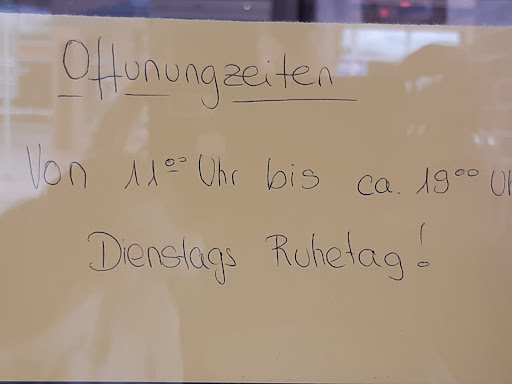 Offunungzeiten
Von 11⁰⁰ Uhr bis ca. 19⁰⁰ Uh
Dienstags Ruhetag!